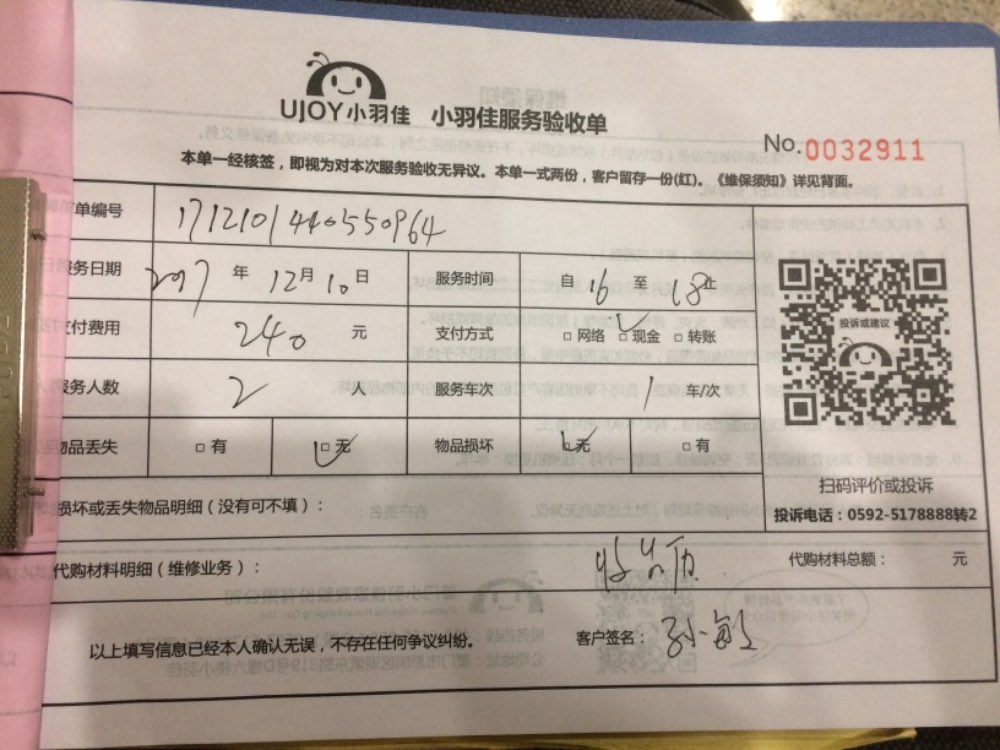 UJOY小羽佳 小羽佳服务验收单
No.0032911
本单一经核签，即视为对本次服务验收无异议。本单一式两份，客户留存一份(红)。《维保须知》详见背面。
单编号 1712101440550964
务日期 2017 年 12 月 10 日 服务时间 自 16 至 18 止
付费用 240 元 支付方式 □ 网络 □ 现金 □ 转账
投诉或建议
务人数 2 人 服务车次 1 车/次
物品丢失 □ 有 □ 无 物品损坏 □ 无 □ 有
扫码评价或投诉
损坏或丢失物品明细（没有可不填）：
投诉电话：0592-5178888转2
代购材料明细（维修业务）： 代购材料总额： 元
以上填写信息已经本人确认无误，不存在任何争议纠纷。 客户签名： 孙敏